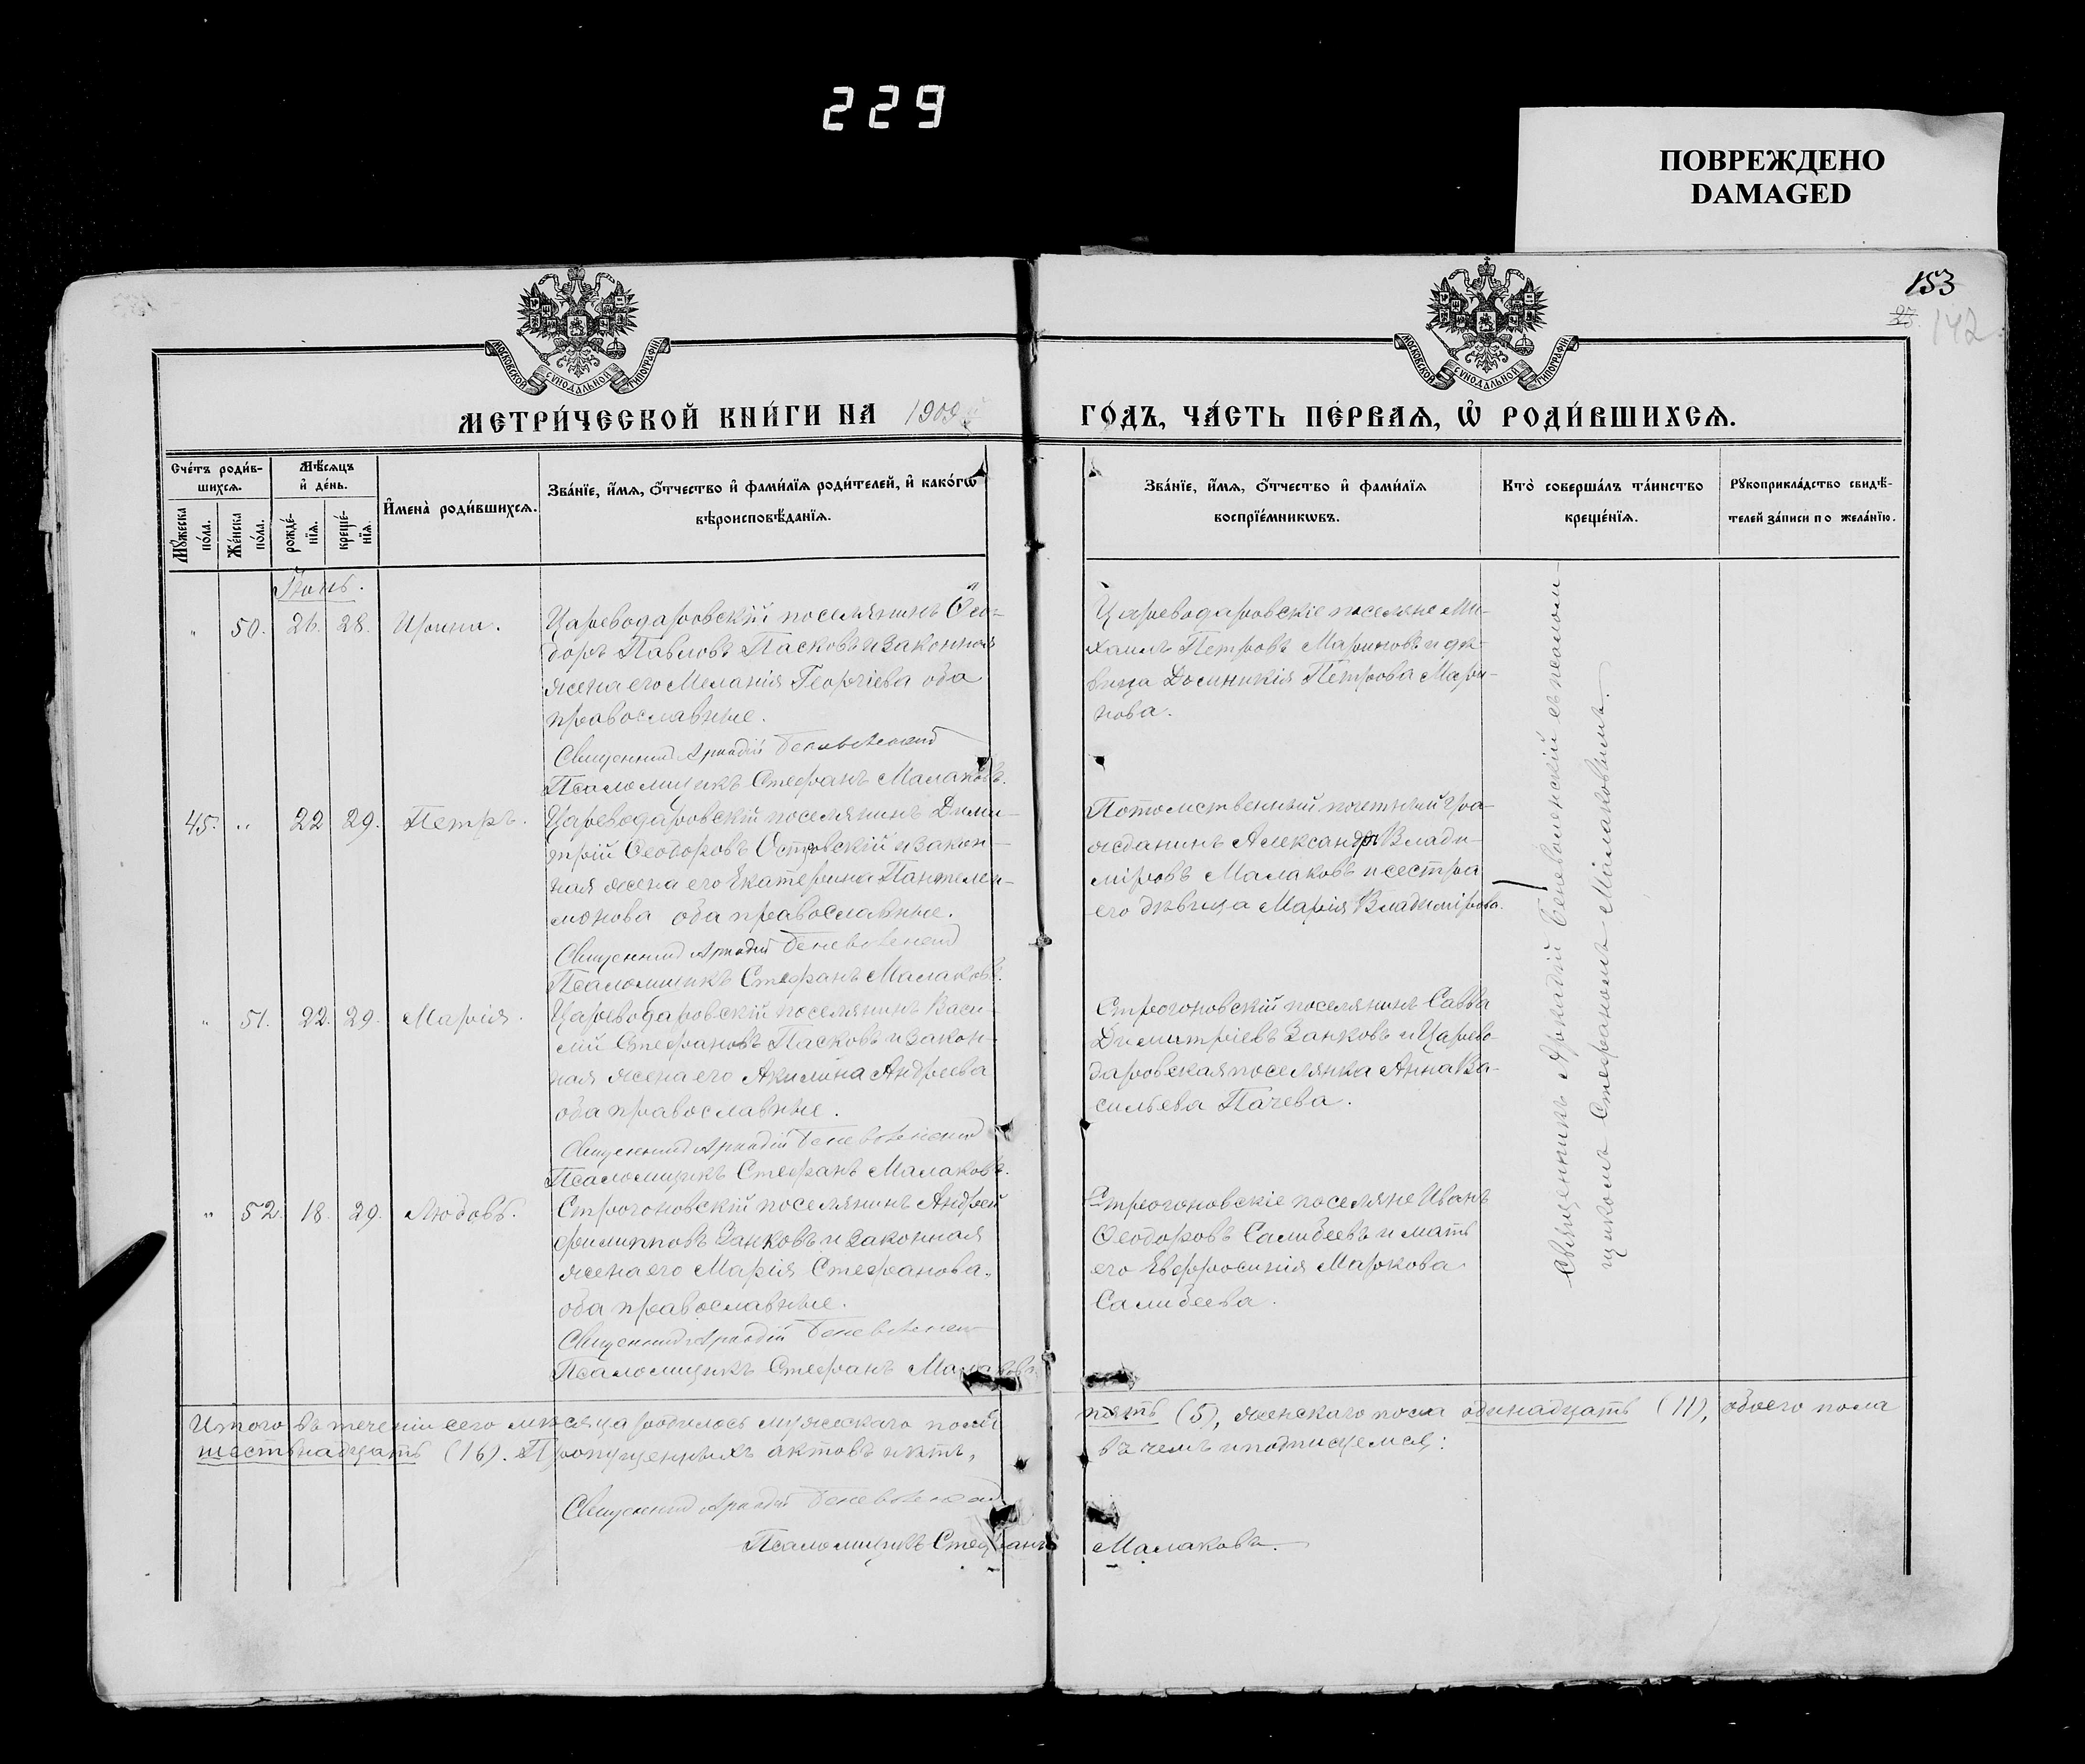 229
ПОВРЕЖДЕНО
DAMAGED
153
142
МОСКОВСКОЙ СѴНОДАЛЬНОЙ ТИПОГРАФІИ
МОСКОВСКОЙ СѴНОДАЛЬНОЙ ТИПОГРАФІИ
МЕТРИ́ЧЕСКОЙ КНИ́ГИ НА 1909
ГО́ДЪ, ЧА́СТЬ ПЕ́РВАѦ, Ѽ РОДИ́ВШИХСѦ.
Сче́тъ роди́в-
шихсѧ.
Мѣ́сѧцъ
и҆ де́нь.
Мꙋ́жеска
по́ла.
Же́нска
по́ла.
рожде́-
нїѧ.
креще́-
нїѧ.
И҆мена̀ роди́вшихсѧ.
Зва́нїе, и҆́мѧ, ѻ҆́тчество и҆ фами́лїѧ роди́телей, и҆ како́гѡ
вѣроисповѣ́данїѧ.
Зва́нїе, и҆́мѧ, ѻ҆́тчество и҆ фами́лїѧ
воспрїе́мникѡвъ.
Кто̀ соверша́лъ та́инство
креще́нїѧ.
Рꙋкоприкла́дство свидѣ́-
телей за́писи по жела́нїю.
Іюнь.
" 50. 26. 28. Ирина.
Цареводаровскій поселянинъ Ѳео-
доръ Павловъ Пасковъ и законная
жена его Меланія Георгіева оба
православные.
Священникъ Аркадій Беневоленскій
Псаломщикъ Стефанъ Малаковъ.
Цареводаровскіе поселяне Ми-
хаилъ Петровъ Мариновъ и дѣ-
вица Домникія Петрова Мари-
нова.
45. " 22 29. Петръ.
Цареводаровскій поселянинъ Дими-
трій Ѳеодоровъ Островскій и закон-
ная жена его Екатерина Пантелеи-
монова оба православные.
Священникъ Аркадій Беневоленскій
Псаломщикъ Стефанъ Малаковъ.
Потомственный почетный гра-
жданинъ Александръ Влади-
міровъ Малаковъ и сестра
его дѣвица Марія Владимірова.
" 51. 22. 29. Марія.
Цареводаровскій поселянинъ Васи-
лій Стефановъ Пасковъ и закон-
ная жена его Акилина Андреева
оба православные.
Священникъ Аркадій Беневоленскій
Псаломщикъ Стефанъ Малаковъ.
Строгоновскій поселянинъ Савва
Димитріевъ Занковъ и Царево-
даровская поселянка Анна Ва-
сильева Пачева.
" 52. 18. 29. Любовь.
Строгоновскій поселянинъ Андрей
Филипповъ Занковъ и законная
жена его Марія Стефанова.
оба православные.
Священникъ Аркадій Беневоленскій
Псаломщикъ Стефанъ Малаковъ.
Строгоновскіе поселяне Иванъ
Ѳеодоровъ Салибеевъ и мать
его Евфросинія Маркова
Салибеева.
Священникъ Аркадій Беневоленскій съ псалом-
щикомъ Стефаномъ Малаковымъ.
Итого въ теченіи сего мѣсяца родилось мужескаго пола пять (5), женскаго пола одинадцать (11), обоего пола
шестьнадцать (16). Пропущенныхъ актовъ нѣтъ, въ чемъ и подписуемся:
Священникъ Аркадій Беневоленскій
Псаломщикъ Стефанъ Малаковъ.